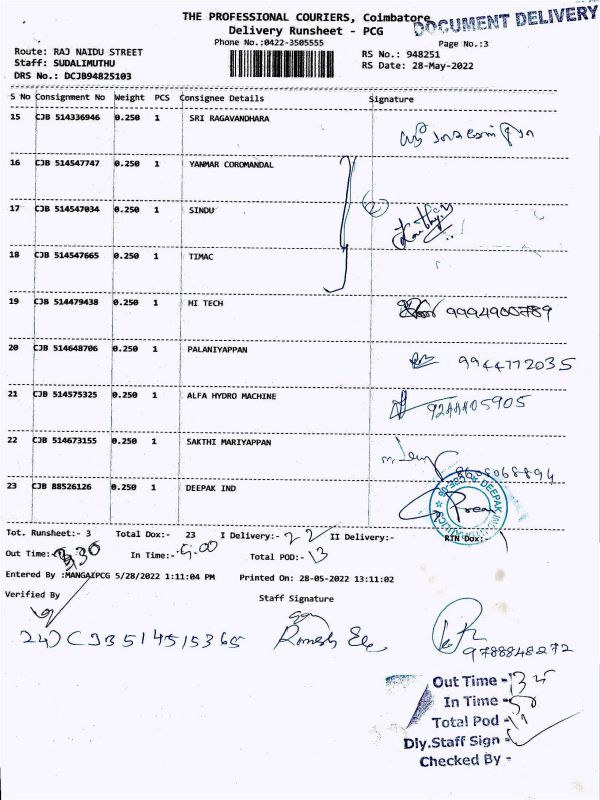 THE PROFESSIONAL COURIERS, Coimbatore
DOCUMENT DELIVERY
Delivery Runsheet - PCG
Phone No.:0422-3505555
Page No.:3
Route: RAJ NAIDU STREET
RS No.: 948251
Staff: SUDALIMUTHU
RS Date: 28-May-2022
DRS No.: DCJB94825103
S No Consignment No Weight PCS Consignee Details Signature
15 CJB 514336946 0.250 1 SRI RAGAVANDHARA
16 CJB 514547747 0.250 1 YANMAR COROMANDAL
17 CJB 514547034 0.250 1 SINDU
18 CJB 514547665 0.250 1 TIMAC
19 CJB 514479438 0.250 1 HI TECH 9994900789
20 CJB 514648706 0.250 1 PALANIYAPPAN 9944772035
21 CJB 514575325 0.250 1 ALFA HYDRO MACHINE 9244405905
22 CJB 514673155 0.250 1 SAKTHI MARIYAPPAN 8608068894
23 CJB 88526126 0.250 1 DEEPAK IND
Tot. Runsheet:- 3 Total Dox:- 23 I Delivery:- 22 II Delivery:- RTN Dox:-
Out Time:- In Time:- 5.00 Total POD:- 13
Entered By :MANGAIPCG 5/28/2022 1:11:04 PM Printed On: 28-05-2022 13:11:02
Verified By Staff Signature
24) CJB514515365
9788848272
Out Time -
In Time -
Total Pod - 11
Dly.Staff Sign -
Checked By -